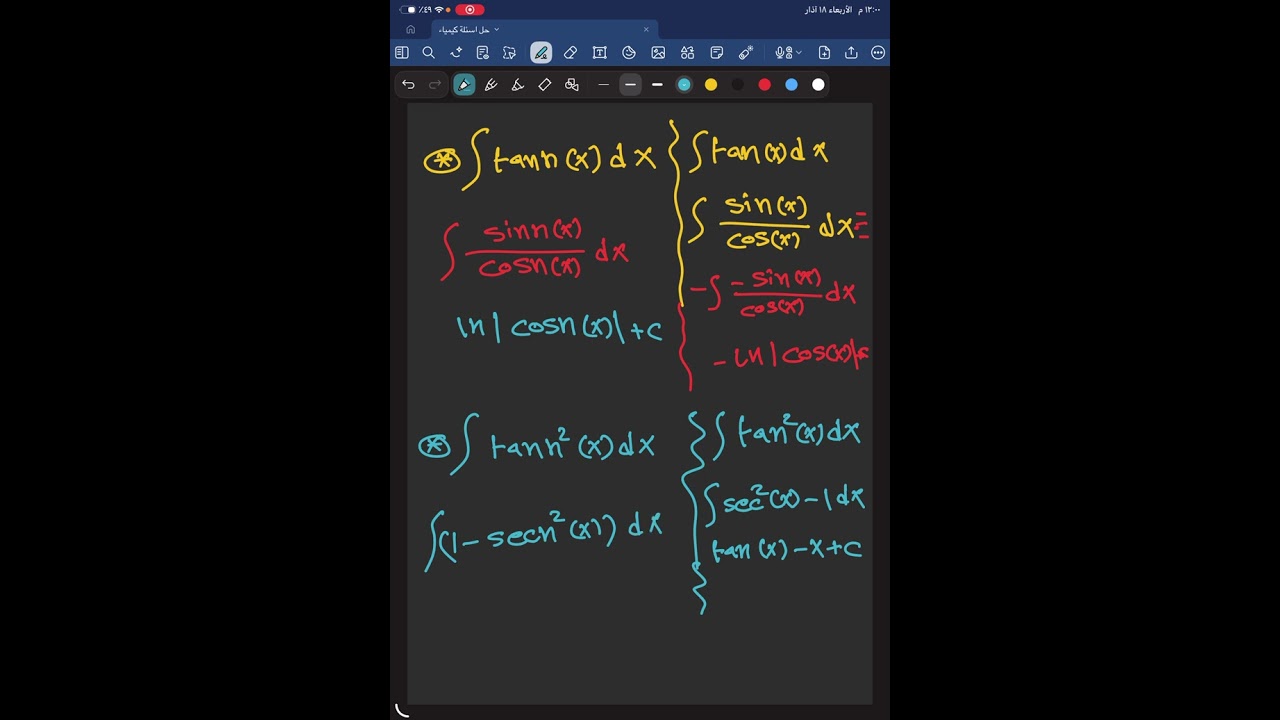 ١٣:٠٠ م الأربعاء ١٨ آذار
٤٩٪
حل اسئلة كيمياء
⊛ ∫ tanh(x) dx
∫ sinh(x) / cosh(x) dx
ln|cosh(x)| + c
∫ tan(x) dx
∫ sin(x) / cos(x) dx =
-∫ -sin(x) / cos(x) dx
-ln|cos(x)|+c
⊛ ∫ tanh²(x) dx
∫(1 - sech²(x)) dx
∫ tan²(x) dx
∫ sec²(x) - 1 dx
tan(x) - x + c